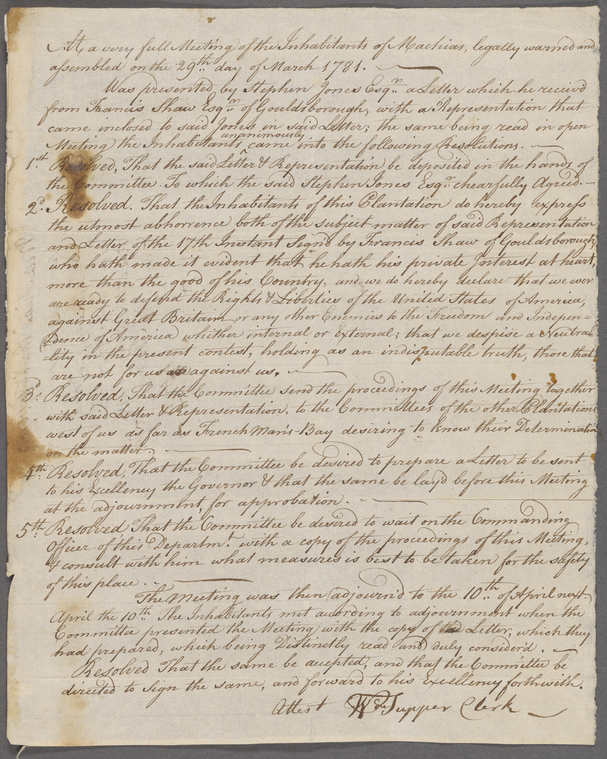 At a very full Meeting of the Inhabitants of Machias, legally warned and
assembled on the 29th day of March 1781.
Was presented, by Stephen Jones Esqr. a Letter which he receivd
from Francis Shaw Esqr. of Gouldsborough, with a Representation that
came inclosed to said Jones in said Letter; the same being read in open
unanimously
Meeting the Inhabitants ^ came into the following Resolutions.
1st Resolved, That the said Letter & Representation be deposited in the hands of
the Committee. To which the said Stephen Jones Esqr. chearfully Agreed.
2d. Resolved. That the Inhabitants of this Plantation do hereby express
the utmost abhorrence both of the subject matter of said Representation
and Letter of the 17th Instant Signd by Francis Shaw of Gouldsborough,
who hath made it evident that he hath his private Interest at heart,
more than the good of his Country, and we do hereby declare that we ever
are ready to defend the Rights & Liberties of the United States of America,
against Great Britain or any other Enemies to the Freedom and Indepen=
=dence of America whither internal or external; that we despise a Neutra=
=lity in the present contest, holding as an indisputable truth, those that
are not for us are against us.
3d. Resolved, That the Committee send the proceedings of this Meeting together
with said Letter & Representation, to the Committees of the other Plantations
west of us as far as French Man's-Bay desiring to know their Determination
on the matter
4th. Resolved, That the Committee be desired to prepare a Letter to be sent
to his Excellency the Governor & that the same be layd before this Meeting
at the adjournment, for approbation.
5th. Resolved That the Committee be desired to wait on the Commanding
Officer of this Departmt. with a copy of the proceedings of this Meeting,
& consult with him what measures is best to be taken for the safety
of this place.
The Meeting was then adjournd to the 10th of April next
April the 10th. The Inhabitants met according to adjournment when the
Committee presented the Meeting with the copy of Letter, which they
had prepared, which being Distinctly read and duly considerd.
Resolved That the same be accepted, and that the Committee be
directed to Sign the same, and forward to his Excellency forthwith.
Attest Wm Tupper Clerk